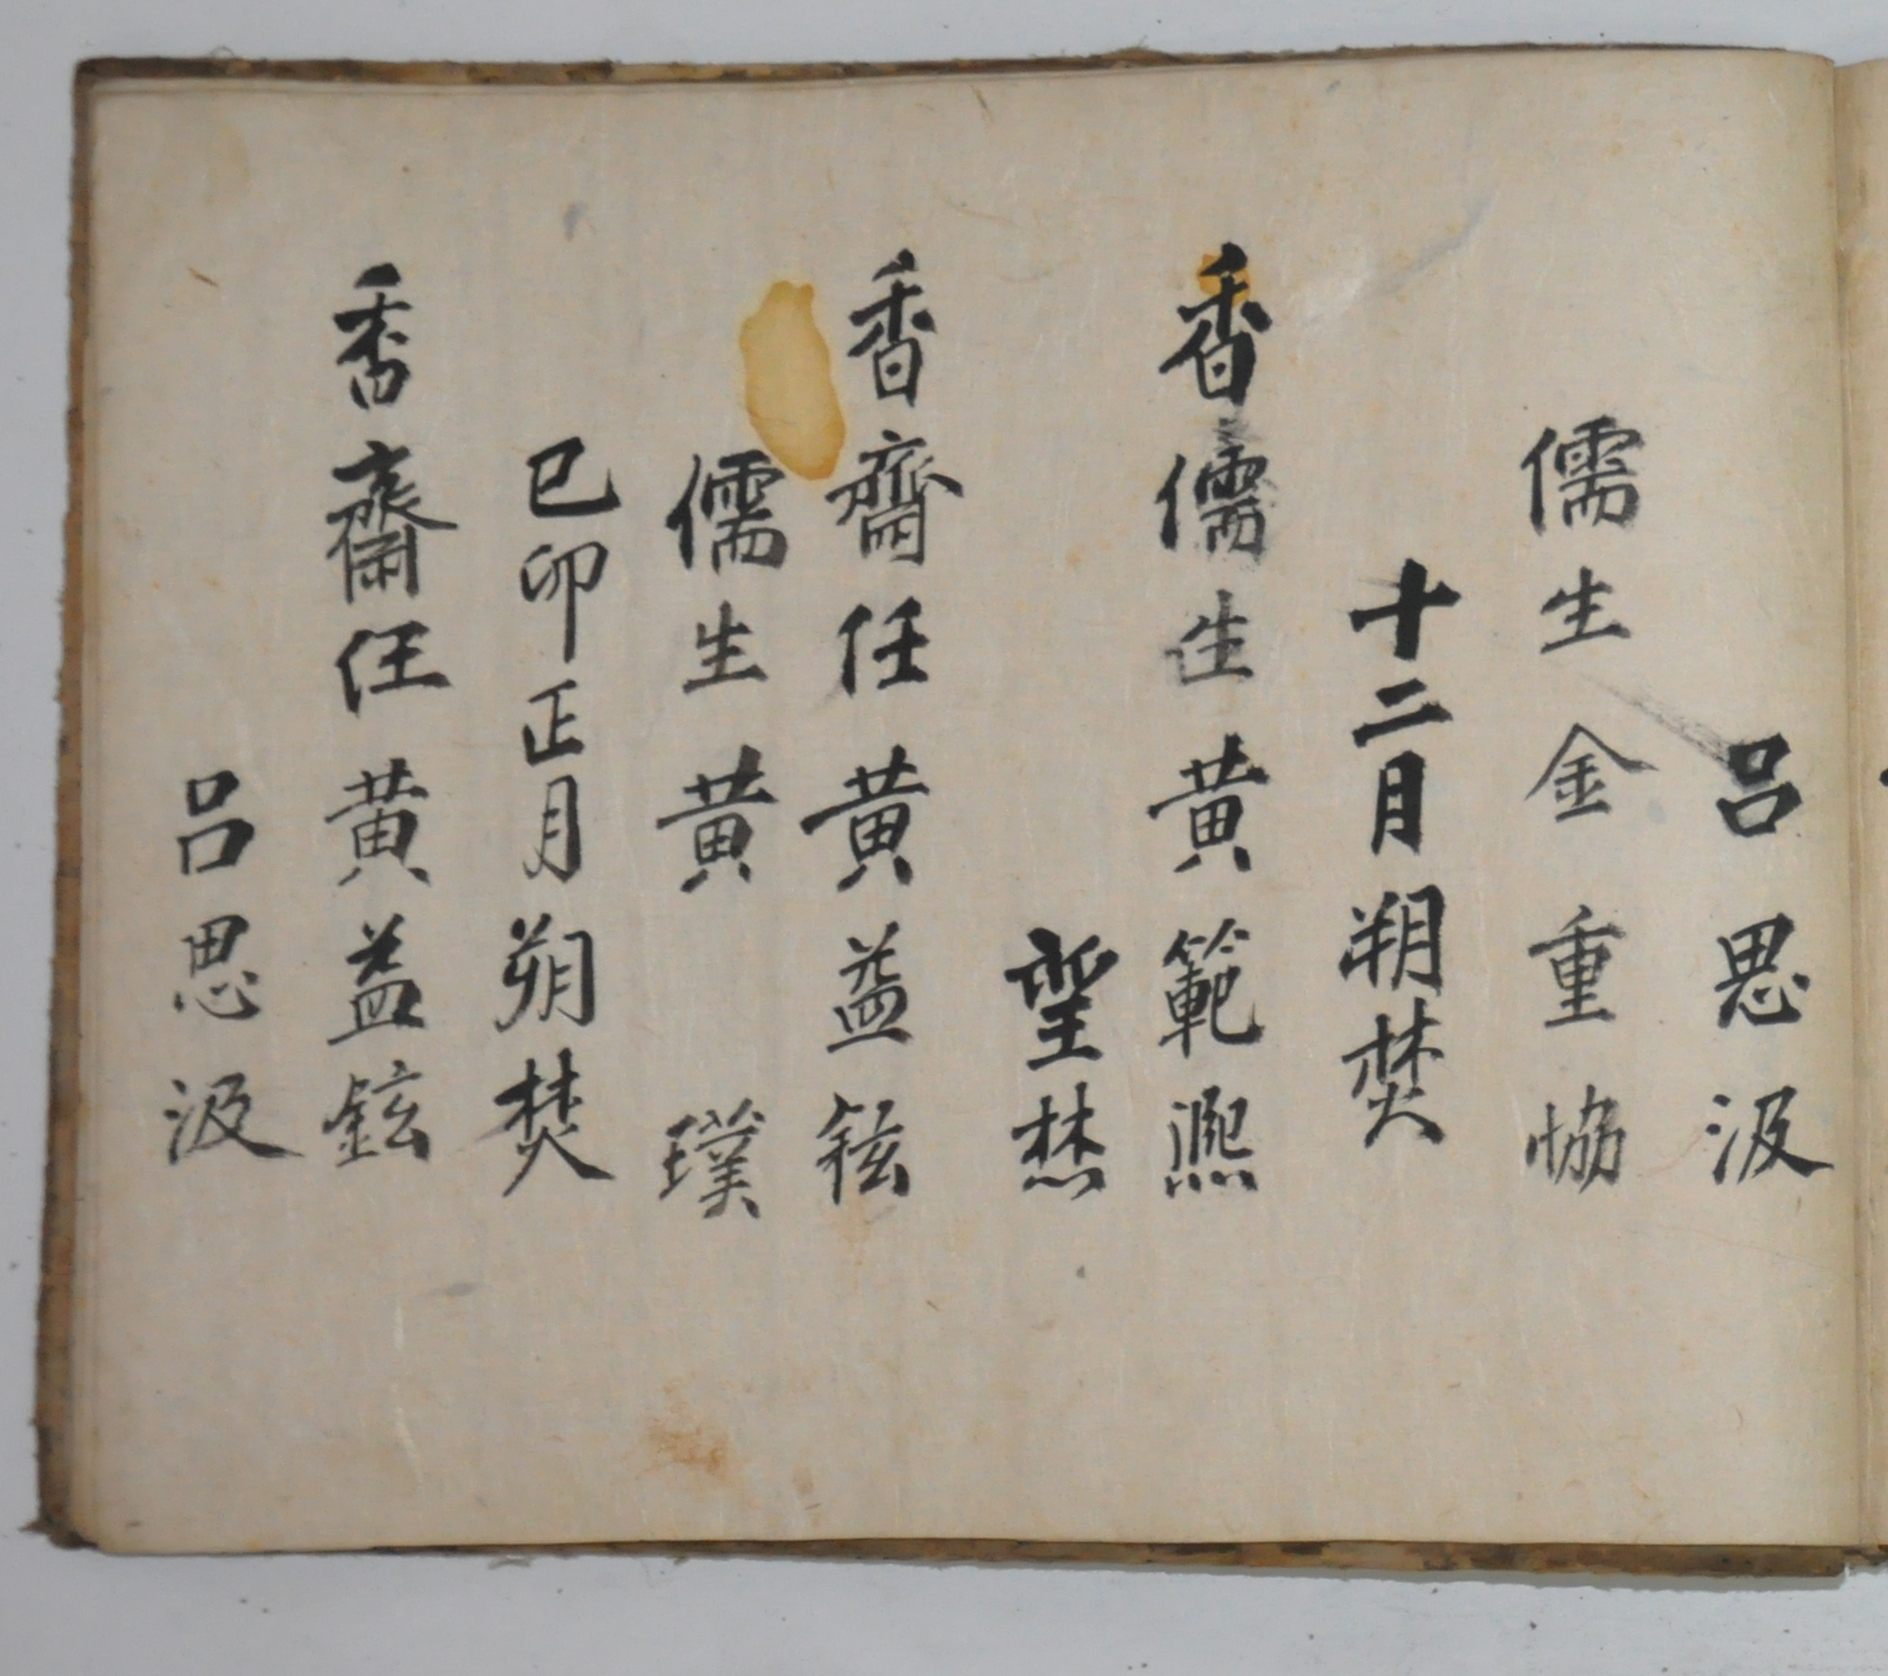 呂思汲
儒生金重協
十二月朔焚
香儒生黃範熈
望焚
香齋任黃益鉉
儒生黃璞
己卯正月朔焚
香齋任黃益鉉
呂思汲